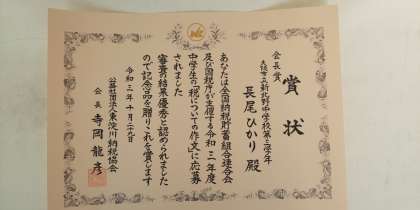 賞状
会長賞
大阪市立新北野中学校第三学年
長尾ひかり殿
あなたは全国納税貯蓄組合連合会
及び国税庁が主催する令和三年度
中学生の「税についての作文」に応募
されました
審査の結果優秀と認められました
ので記念品を贈りこれを賞します
令和三年十月二十九日
公益社団法人東淀川納税協会
会長 寺岡龍彦